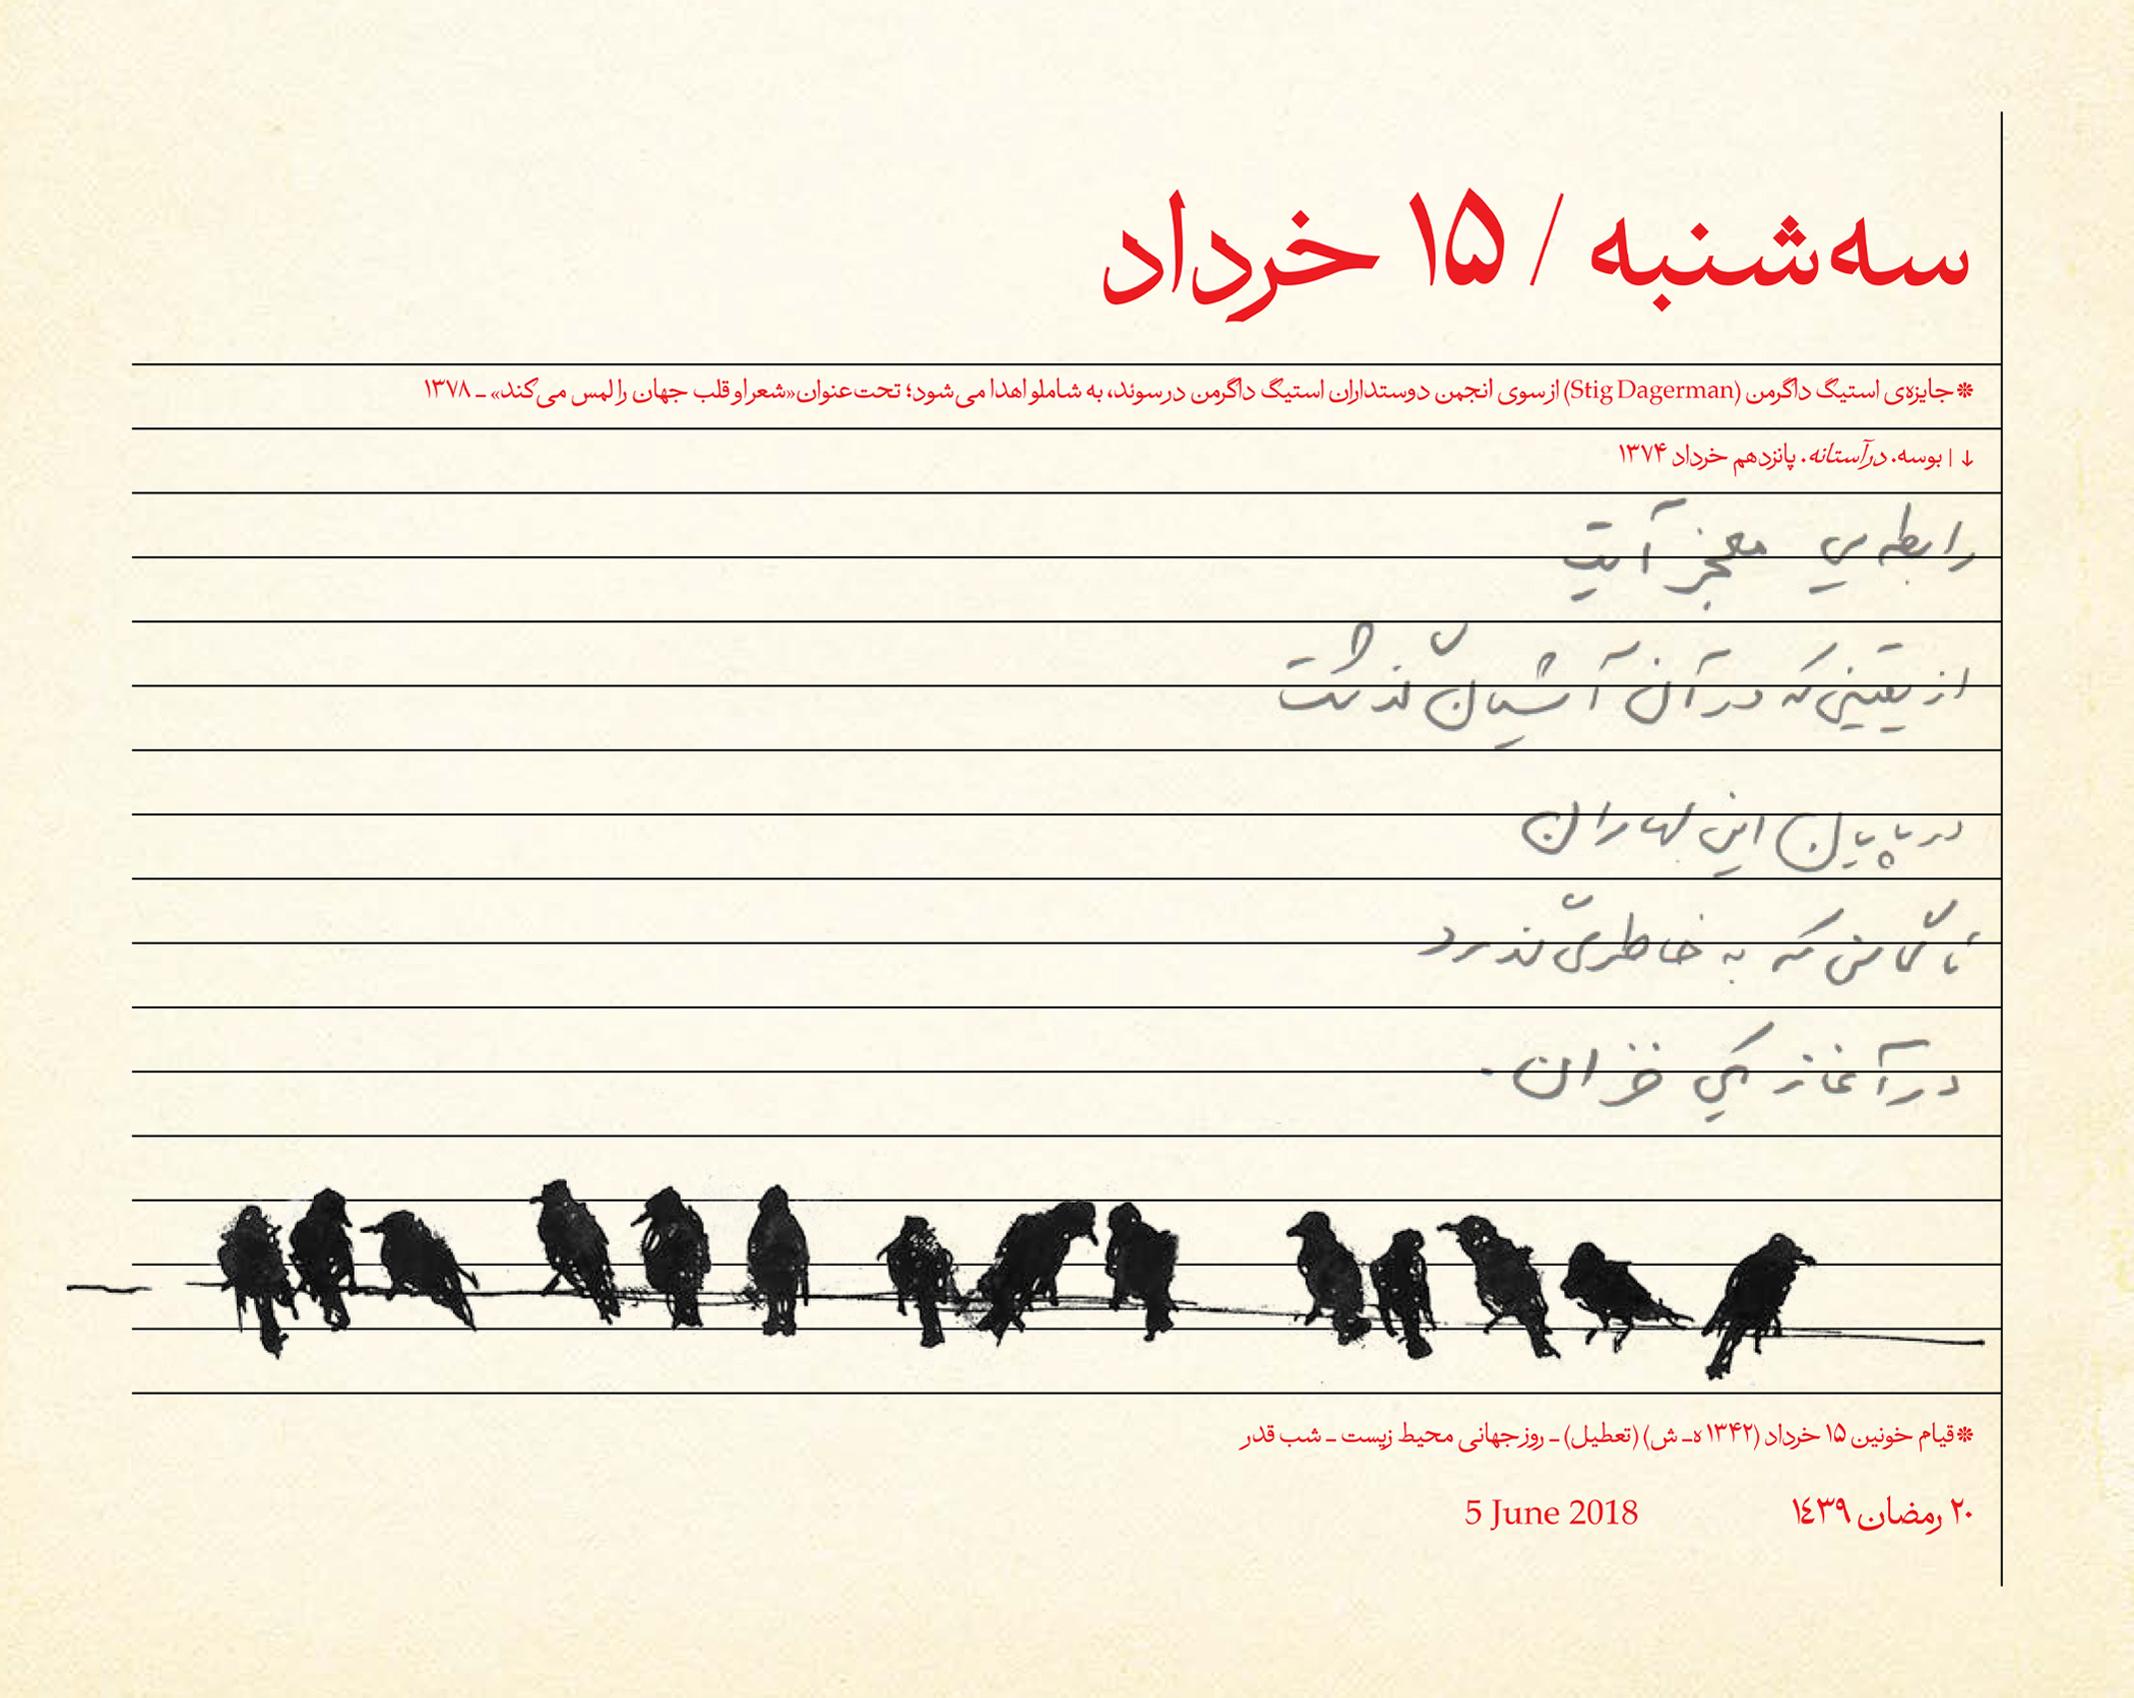 سه‌شنبه / ۱۵ خرداد
* جایزه‌ی استیگ داگرمن (Stig Dagerman) از سوی انجمن دوستداران استیگ داگرمن در سوئد، به شاملو اهدا می‌شود؛ تحت عنوان «شعر او قلب جهان را لمس می‌کند» ـ ۱۳۷۸
↓ | بوسه. در آستانه. پانزدهم خرداد ۱۳۷۴
رابطه‌یی معجزآیت
از یقینی که در آن آشیان گذشت
در پایان این بهاران
تا گمانی که به خاطری گذرد
در آغاز یکی خزان.
* قیام خونین ۱۵ خرداد (۱۳۴۲ هـ ش) (تعطیل) ـ روز جهانی محیط زیست ـ شب قدر
۲۰ رمضان ۱٤۳۹ 5 June 2018